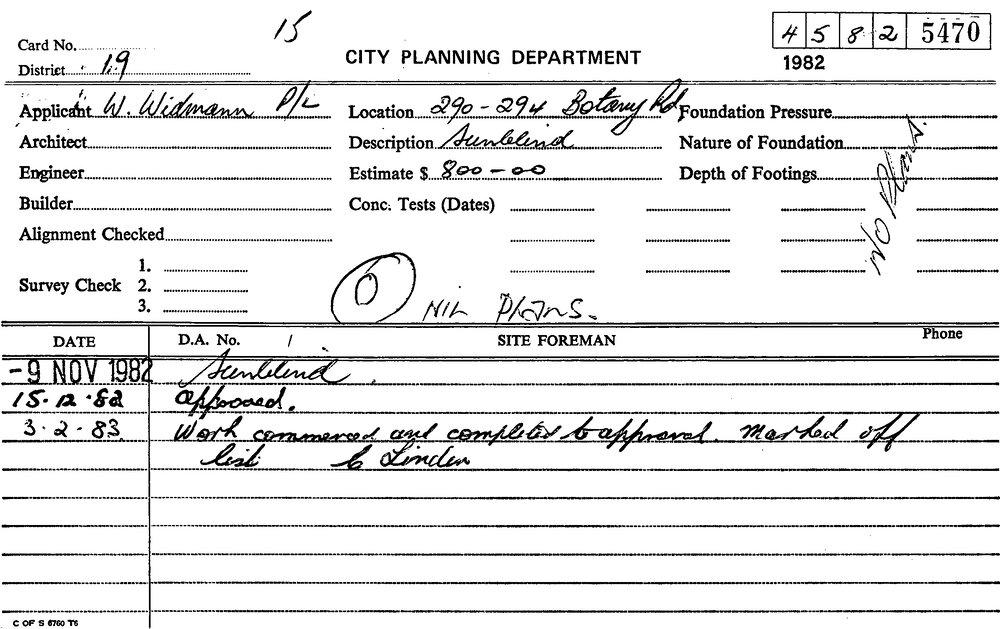 15
4 5 8 2 5470
Card No.
CITY PLANNING DEPARTMENT
1982
District 19
Applicant W. Widmann P/L Location 290-294 Botany Rd, Foundation Pressure
Architect Description Sunblind Nature of Foundation
Engineer Estimate $ 800-00 Depth of Footings
Builder Conc. Tests (Dates)
No Plans.
Alignment Checked
Survey Check 1.
2.
3.
NIL PLANS.
DATE D.A. No. / SITE FOREMAN Phone
-9 NOV 1982 Sunblind.
15.12.82 Approved.
3.2.83 Work commenced and completed to approval. Marked off
list C Linden
C OF S 6760 T6